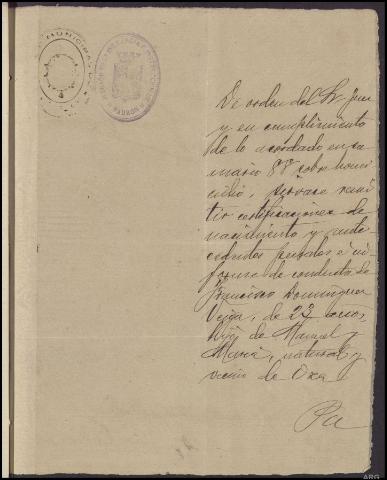 MUNICIPAL
De orden del Sr Juez
y en cumplimiento
de lo acordado en su
mario 88 sobre homi
cidio, sírvase remi
tir certificaciones de
nacimiento y ante
cedentes penales é in
forme de conducta de
Francisco Domínguez
Veiga, de 23 años,
hijo de Manuel y
María, natural y
vecino de Oza
ARG